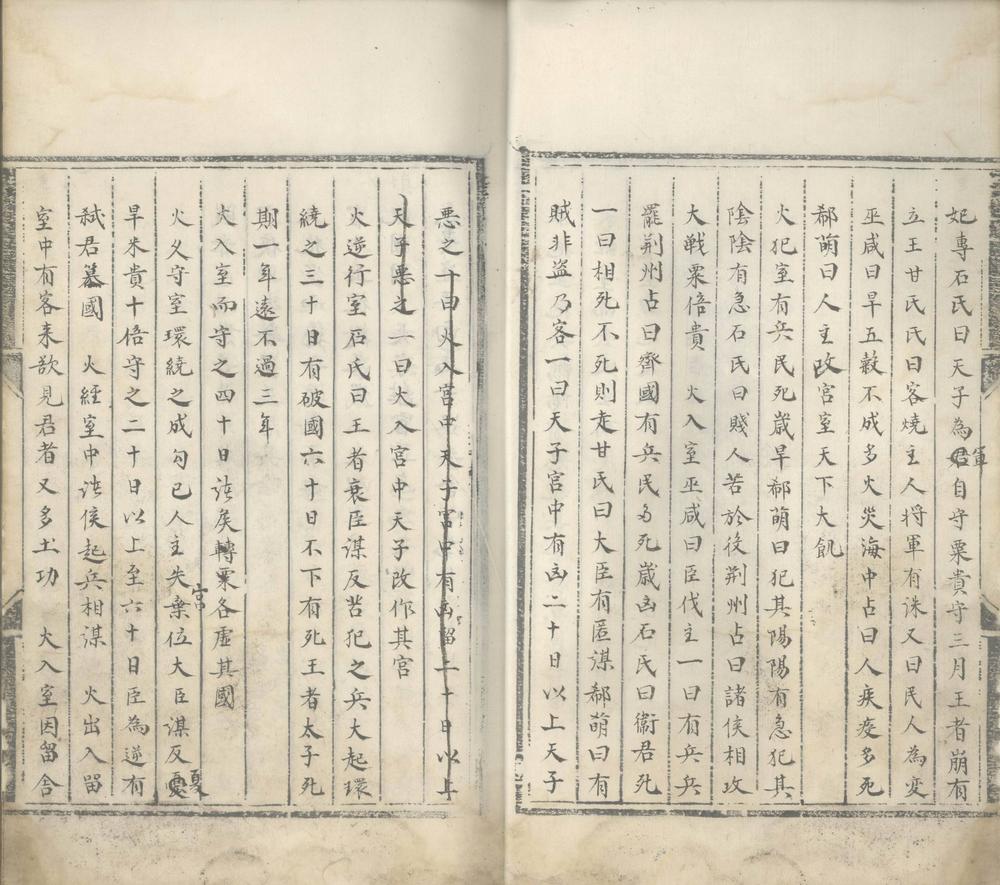 妃專石氏曰天子為軍自守粟貴守三月王者崩有
立王甘氏氏曰客燒主人将軍有誅又曰民人為变
巫咸曰旱五穀不成多火災海中占曰人疾疫多死
郗萌曰人主改宫室天下大飢
火犯室有兵民死歳旱郗萌曰犯其陽陽有急犯其
陰陰有急石氏曰賤人苦於役荆州占曰諸侯相攻
大戦粟倍貴　火入室巫咸曰臣伐主一曰有兵兵
罷荆州占曰齊國有兵民多死歳凶石氏曰衛君死
一曰相死不死則走甘氏曰大臣有匿謀郗萌曰有
賊非盗乃客一曰天子宫中有凶二十日以上天子
惡之一曰火入宫中天子宫中有凶留二十日以上
天子惡之一曰火入宫中天子改作其宫
火逆行室石氏曰王者衰臣謀反若犯之兵大起環
繞之三十日有破國六十日不下有死王者太子死
期一年遠不過三年
火入室而守之四十日諸矦轉粟各虚其國
火久守室環繞之成勾已人主失棄宫位大臣謀反夏
旱米貴十倍守之二十日以上至六十日臣為逆有
弑君墓國　火經室中諸侯起兵相謀　火出入留
室中有客来欲見君者又多土功　火入室因留舍